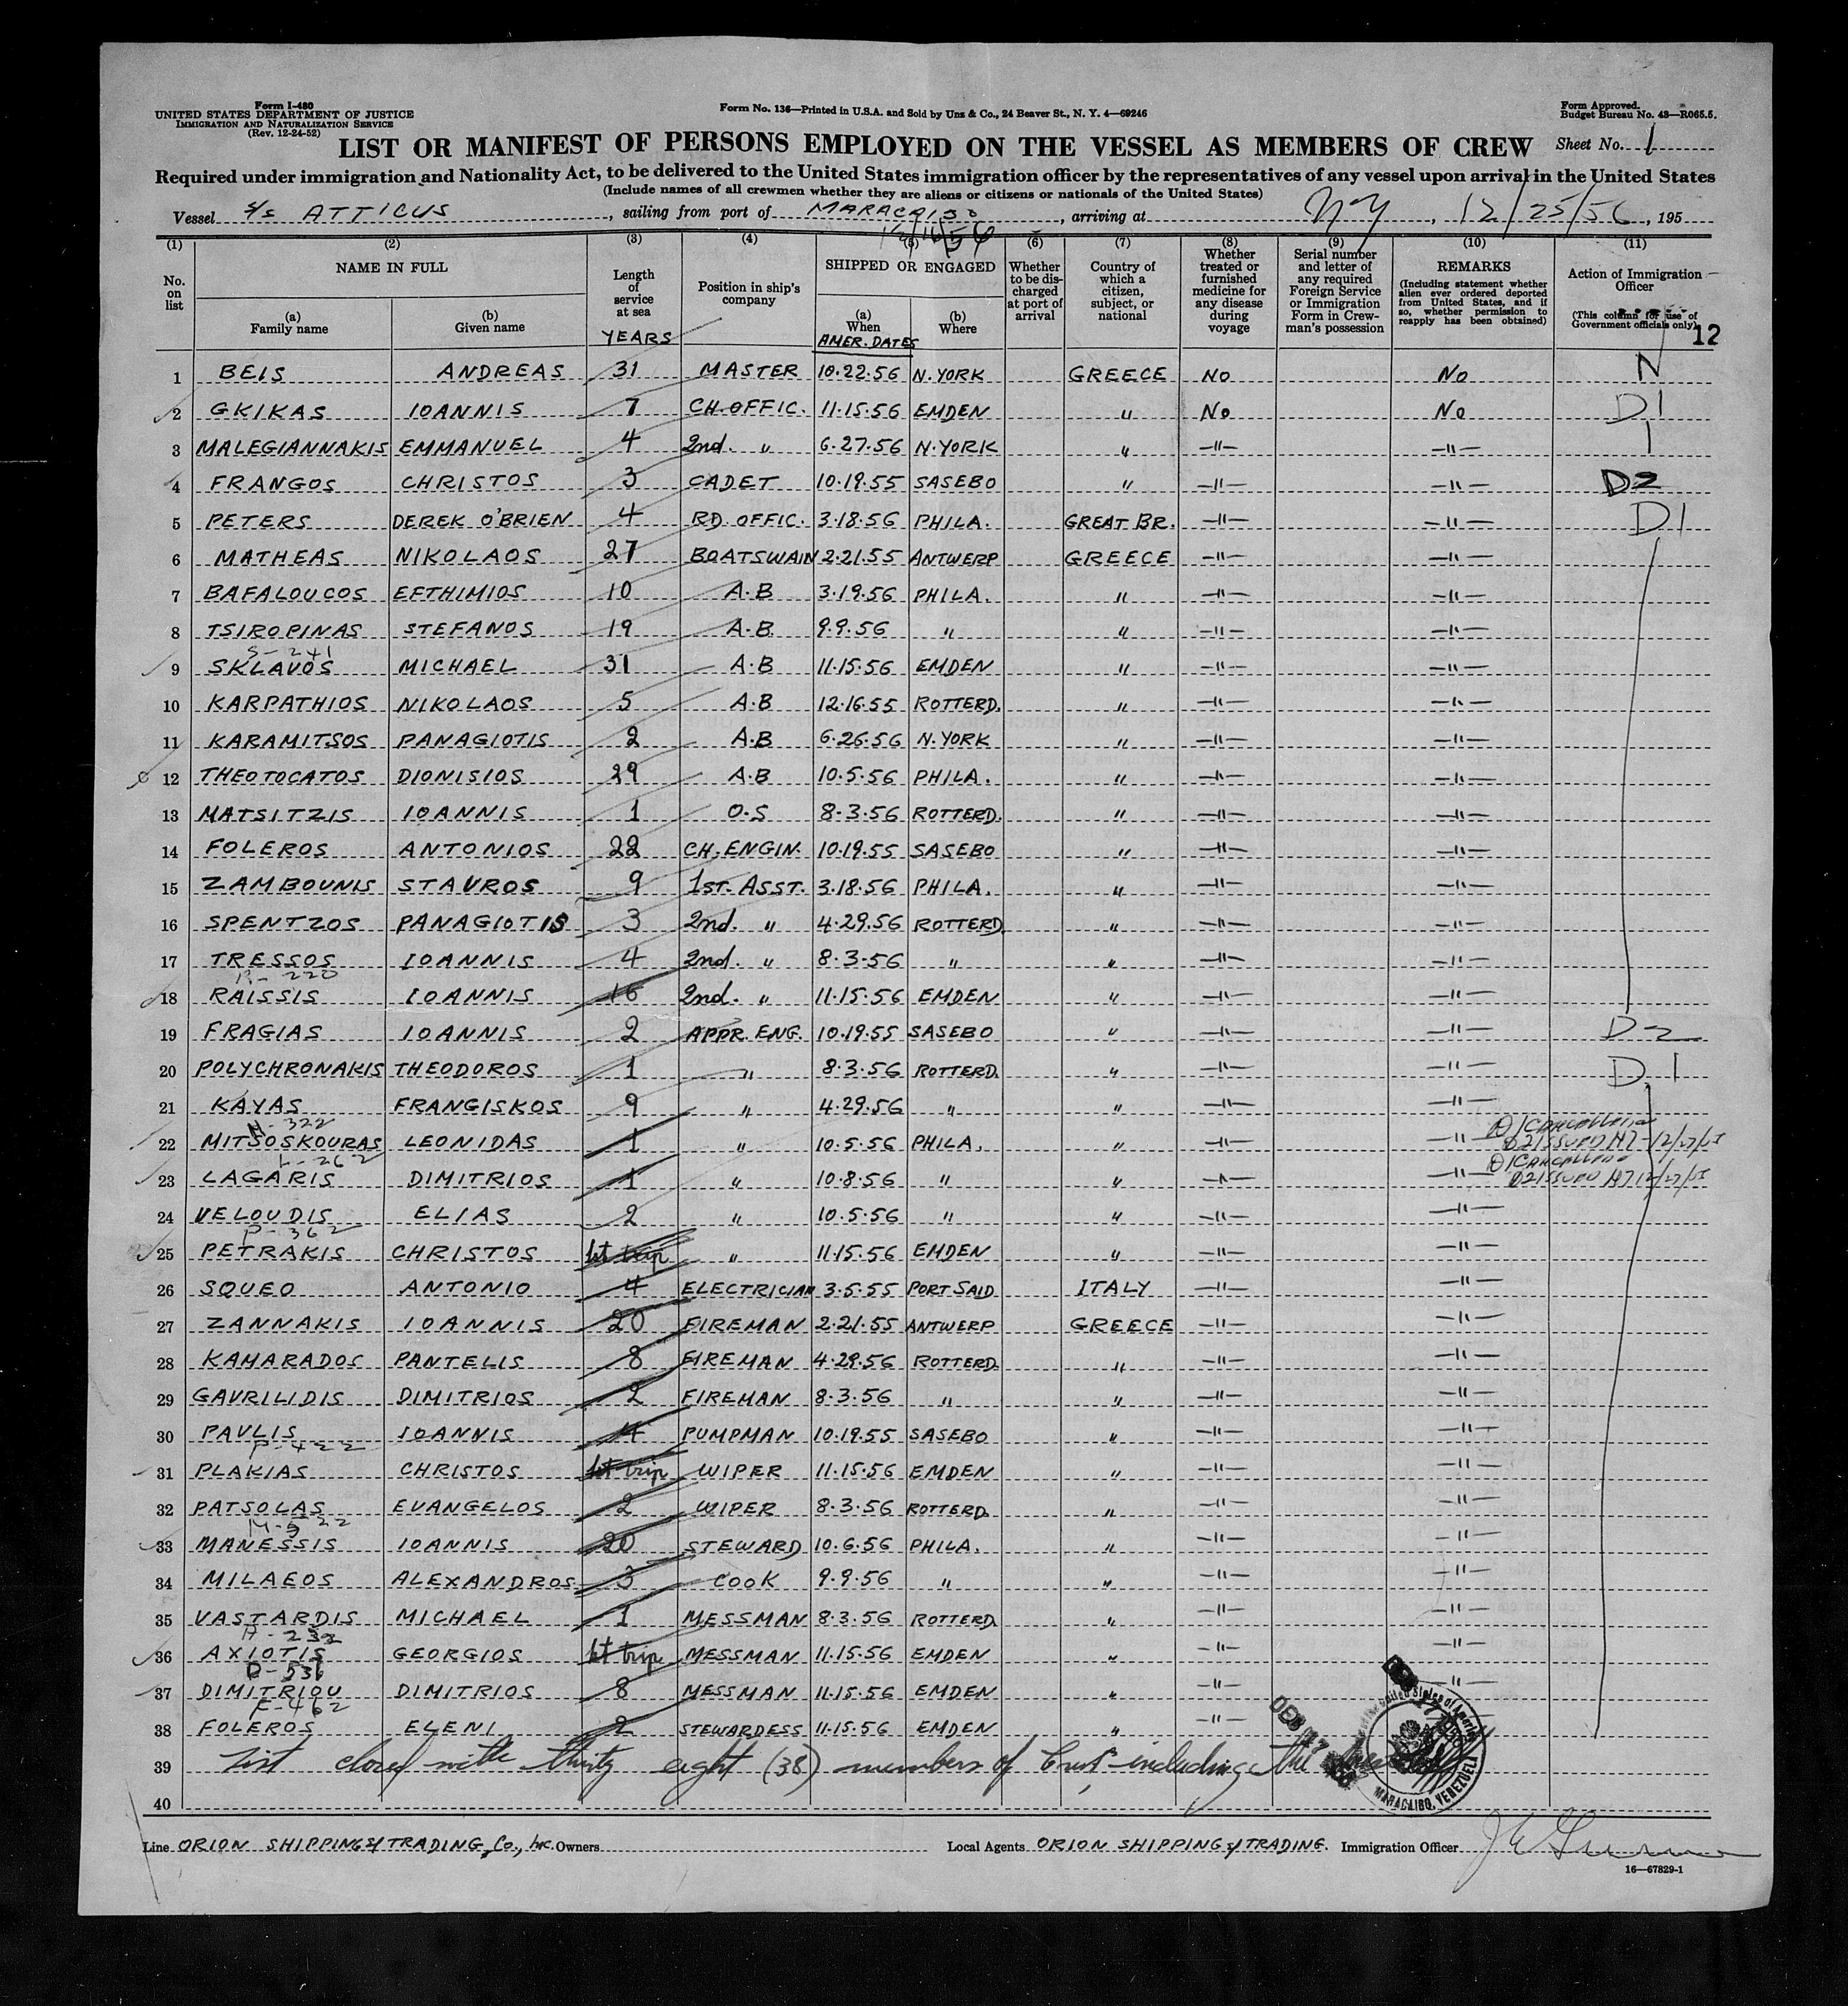 Form I-480
UNITED STATES DEPARTMENT OF JUSTICE
IMMIGRATION AND NATURALIZATION SERVICE
(Rev. 12-24-52)
Form No. 136—Printed in U.S.A. and Sold by Unz & Co., 24 Beaver St., N. Y. 4—69246
Form Approved.
Budget Bureau No. 43—R065.5.
LIST OR MANIFEST OF PERSONS EMPLOYED ON THE VESSEL AS MEMBERS OF CREW Sheet No. 1
Required under immigration and Nationality Act, to be delivered to the United States immigration officer by the representatives of any vessel upon arrival in the United States
(Include names of all crewmen whether they are aliens or citizens or nationals of the United States)
Vessel S/S ATTICUS, sailing from port of MARACAIBO, arriving at NY, 12/25/56, 195
12/16/56
(1) (2) (3) (4) (5) (6) (7) (8) (9) (10) (11)
No. on list
NAME IN FULL
(a) Family name
(b) Given name
Length of service at sea
YEARS
Position in ship's company
SHIPPED OR ENGAGED
(a) When
AMER. DATES
(b) Where
Whether to be discharged at port of arrival
Country of which a citizen, subject, or national
Whether treated or furnished medicine for any disease during voyage
Serial number and letter of any required Foreign Service or Immigration Form in Crewman's possession
REMARKS
(Including statement whether alien ever ordered deported from United States, and if so, whether permission to reapply has been obtained)
Action of Immigration Officer
(This column for use of Government officials only)
12
1 BEIS ANDREAS 31 MASTER 10.22.56 N.YORK GREECE NO NO N
2 GKIKAS IOANNIS 7 CH.OFFIC. 11.15.56 EMDEN " NO NO D1
3 MALEGIANNAKIS EMMANUEL 4 2nd. " 6.27.56 N.YORK " —"— —"— 1
4 FRANGOS CHRISTOS 3 CADET 10.19.55 SASEBO " —"— —"— D2
5 PETERS DEREK O'BRIEN 4 RD.OFFIC. 3.18.56 PHILA. GREAT BR. —"— —"— D1
6 MATHEAS NIKOLAOS 27 BOATSWAIN 2.21.55 ANTWERP GREECE —"— —"—
7 BAFALOUCOS EFTHIMIOS 10 A.B 3.19.56 PHILA. " —"— —"—
8 TSIROPINAS STEFANOS 19 A.B. 9.9.56 " " —"— —"—
S-241
9 SKLAVOS MICHAEL 31 A.B 11.15.56 EMDEN " —"— —"—
10 KARPATHIOS NIKOLAOS 5 A.B 12.16.55 ROTTERD. " —"— —"—
11 KARAMITSOS PANAGIOTIS 2 A.B 6.26.56 N.YORK " —"— —"—
12 THEOTOCATOS DIONISIOS 29 A.B 10.5.56 PHILA. " —"— —"—
13 MATSITZIS IOANNIS 1 O.S 8.3.56 ROTTERD. " —"— —"—
14 FOLEROS ANTONIOS 22 CH.ENGIN. 10.19.55 SASEBO " —"— —"—
15 ZAMBOUNIS STAVROS 9 1ST. ASST. 3.18.56 PHILA. " —"— —"—
16 SPENTZOS PANAGIOTIS 3 2nd. " 4.29.56 ROTTERD. " —"— —"—
17 TRESSOS IOANNIS 4 2nd. " 8.3.56 " " —"— —"—
R-220
18 RAISSIS IOANNIS 16 2nd. " 11.15.56 EMDEN " —"— —"—
19 FRAGIAS IOANNIS 2 APPR.ENG. 10.19.55 SASEBO " —"— —"— D-2
20 POLYCHRONAKIS THEODOROS 1 " 8.3.56 ROTTERD. " —"— —"— D 1
21 KAYAS FRANGISKOS 9 " 4.29.56 " " —"— —"—
M-322
22 MITSOSKOURAS LEONIDAS 1 " 10.5.56 PHILA. " —"— —"— D1 Cancelled
D2 ISSUED
L-262
23 LAGARIS DIMITRIOS 1 " 10.8.56 " " —"— —"— D1 Cancelled
D2 ISSUED
24 VELOUDIS ELIAS 2 " 10.5.56 " " —"— —"—
P-362
25 PETRAKIS CHRISTOS 1st trip " 11.15.56 EMDEN " —"— —"—
26 SQUEO ANTONIO 4 ELECTRICIAN 3.5.55 PORT SAID ITALY —"— —"—
27 ZANNAKIS IOANNIS 20 FIREMAN 2.21.55 ANTWERP GREECE —"— —"—
28 KAMARADOS PANTELIS 8 FIREMAN 4.29.56 ROTTERD. " —"— —"—
29 GAVRILIDIS DIMITRIOS 2 FIREMAN 8.3.56 " " —"— —"—
30 PAVLIS IOANNIS 4 PUMPMAN 10.19.55 SASEBO " —"— —"—
P-422
31 PLAKIAS CHRISTOS 1st trip WIPER 11.15.56 EMDEN " —"— —"—
32 PATSOLAS EVANGELOS 2 WIPER 8.3.56 ROTTERD. " —"— —"—
M-522
33 MANESSIS IOANNIS 20 STEWARD 10.6.56 PHILA. " —"— —"—
34 MILAEOS ALEXANDROS 3 COOK 9.9.56 " " —"— —"—
35 VASTARDIS MICHAEL 1 MESSMAN 8.3.56 ROTTERD. " —"— —"—
A-232
36 AXIOTIS GEORGIOS 1st trip MESSMAN 11.15.56 EMDEN " —"— —"—
D-536
37 DIMITRIOU DIMITRIOS 8 MESSMAN 11.15.56 EMDEN " —"— —"—
F-462
38 FOLEROS ELENI 2 STEWARDESS 11.15.56 EMDEN " —"—
39 List closed with thirty eight (38) members of Crew including the
40
United States of America
MARACAIBO, VENEZUELA
Line ORION SHIPPING & TRADING, Co., INC. Owners
Local Agents ORION SHIPPING & TRADING. Immigration Officer
16—67829-1